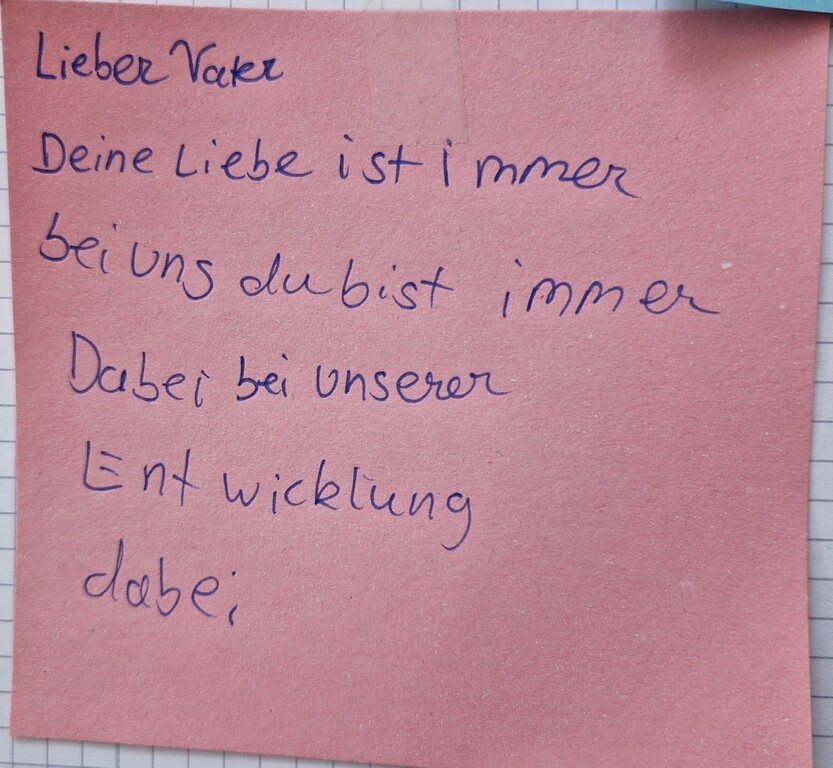 Lieber Vater
Deine Liebe ist immer
bei uns du bist immer
Dabei bei unserer
Entwicklung
dabei